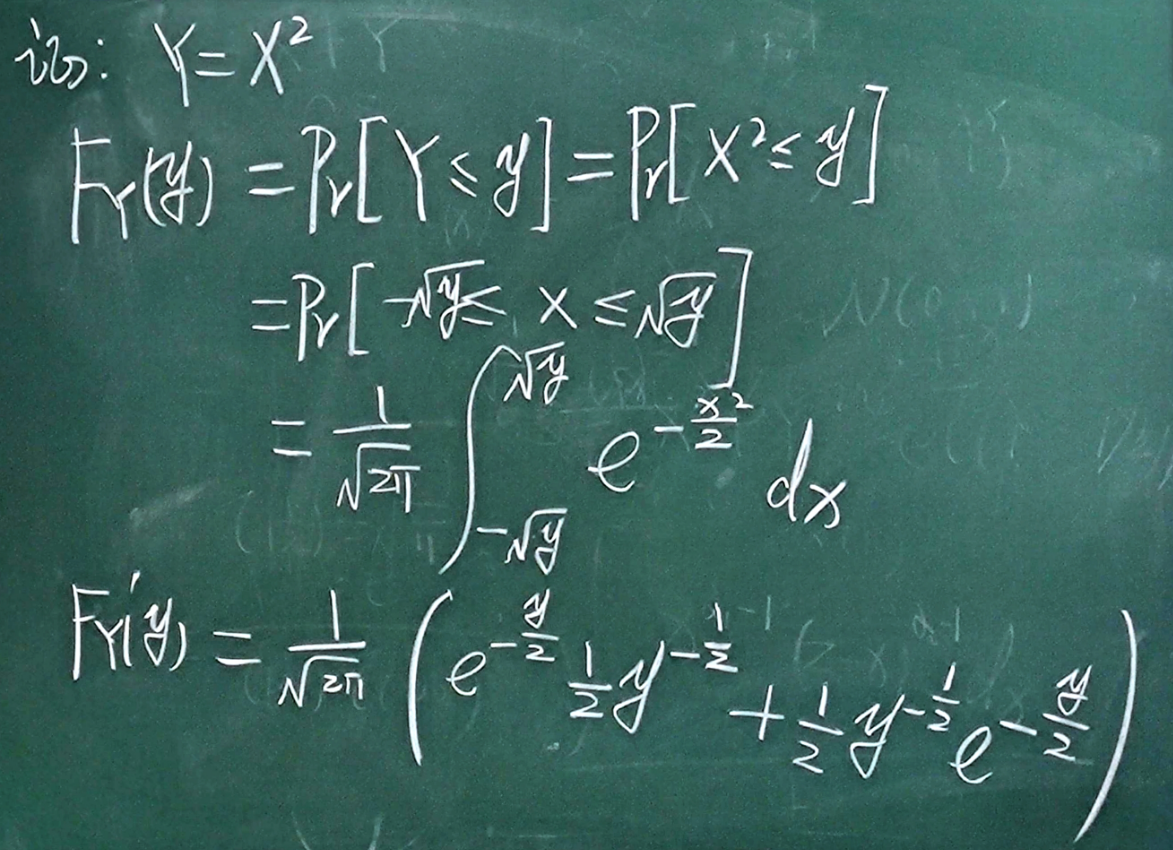 记: Y = X²
F_Y(y) = Pr[Y ≤ y] = Pr[X² ≤ y]
= Pr[-√y ≤ x ≤ √y]
= \frac{1}{\sqrt{2π}} \int_{-\sqrt{y}}^{\sqrt{y}} e^{-\frac{x^2}{2}} dx
F_Y'(y) = \frac{1}{\sqrt{2π}} ( e^{-\frac{y}{2}} \frac{1}{2} y^{-\frac{1}{2}} + \frac{1}{2} y^{-\frac{1}{2}} e^{-\frac{y}{2}} )